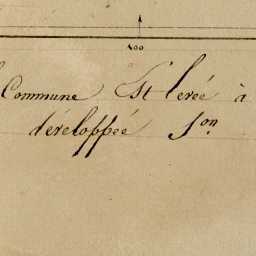 100
Commune Est levée à
développée Son